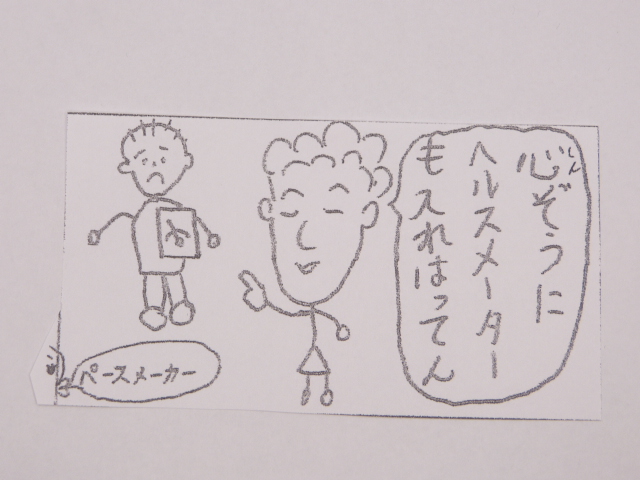 心ぞうに
しん
ヘルスメーター
も入れはってん
ペースメーカー